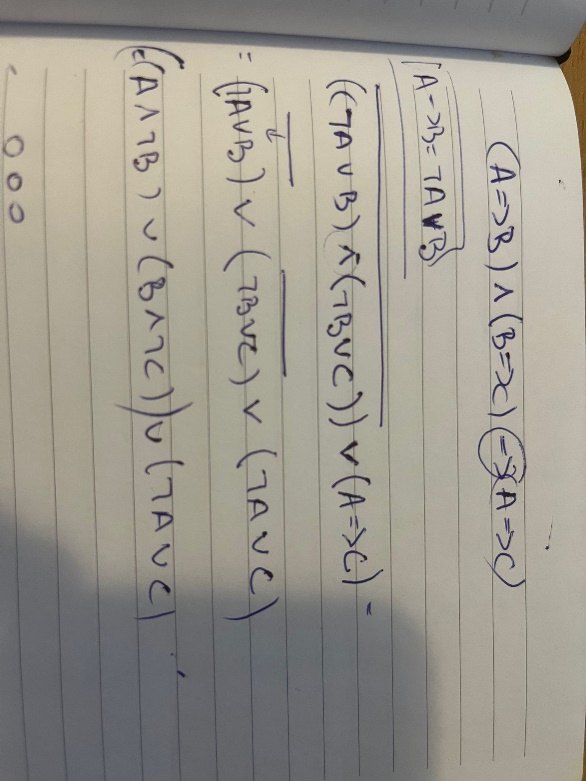 (A=>B) ∧ (B=>C) => (A=>C)
A->B = ¬A∨B
((¬A∨B) ∧ (¬B∨C)) ∨ (A=>C) =
= (¬A∨B) ∨ (¬B∨C) ∨ (¬A∨C)
((A∧¬B) ∨ (B∧¬C)) ∨ (¬A∨C)